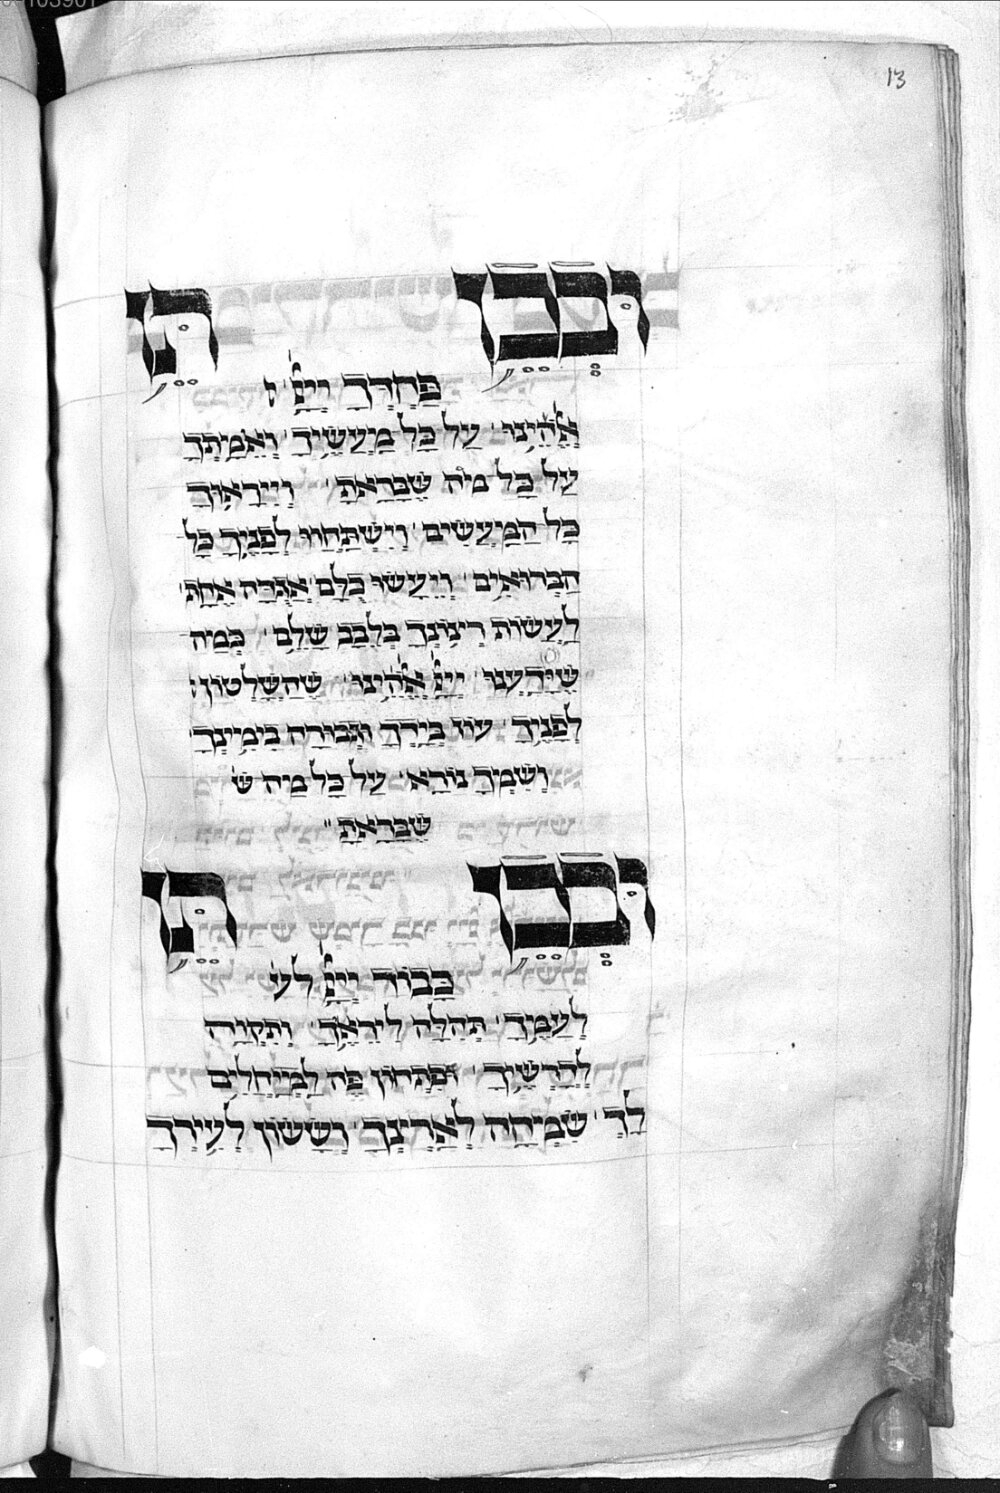 13
וּבְכֵן תֵּן
פַּחְדְּךָ יְיָ
אֱלֹהֵינוּ עַל כָּל מַעֲשֶׂיךָ וְאֵמָתְךָ
עַל כָּל מַה שֶּׁבָּרָאתָ וְיִירָאוּךָ
כָּל הַמַּעֲשִׂים וְיִשְׁתַּחֲווּ לְפָנֶיךָ כָּל
הַבְּרוּאִים וְיֵעָשׂוּ כֻלָּם אֲגֻדָּה אֶחָת
לַעֲשׂוֹת רְצוֹנְךָ בְּלֵבָב שָׁלֵם כְּמַה
שֶּׁיָּדַעְנוּ יְיָ אֱלֹהֵינוּ שֶׁהַשִּׁלְטוֹן
לְפָנֶיךָ עוֹז בְּיָדְךָ וּגְבוּרָה בִימִינֶךָ
וְשִׁמְךָ נוֹרָא עַל כָּל מַה שֶׁ
שֶּׁבָּרָאתָ
וּבְכֵן תֵּן
כָּבוֹד יְיָ לע
לְעַמֶּךָ תְּהִלָּה לִירֵאֶךָ וְתִקְוָה
לְדֹרְשֶׁיךָ וּפִתְחוֹן פֶּה לַמְיַחֲלִים
לָךְ שִׂמְחָה לְאַרְצֶךָ וְשָׂשׂוֹן לְעִירֶךָ